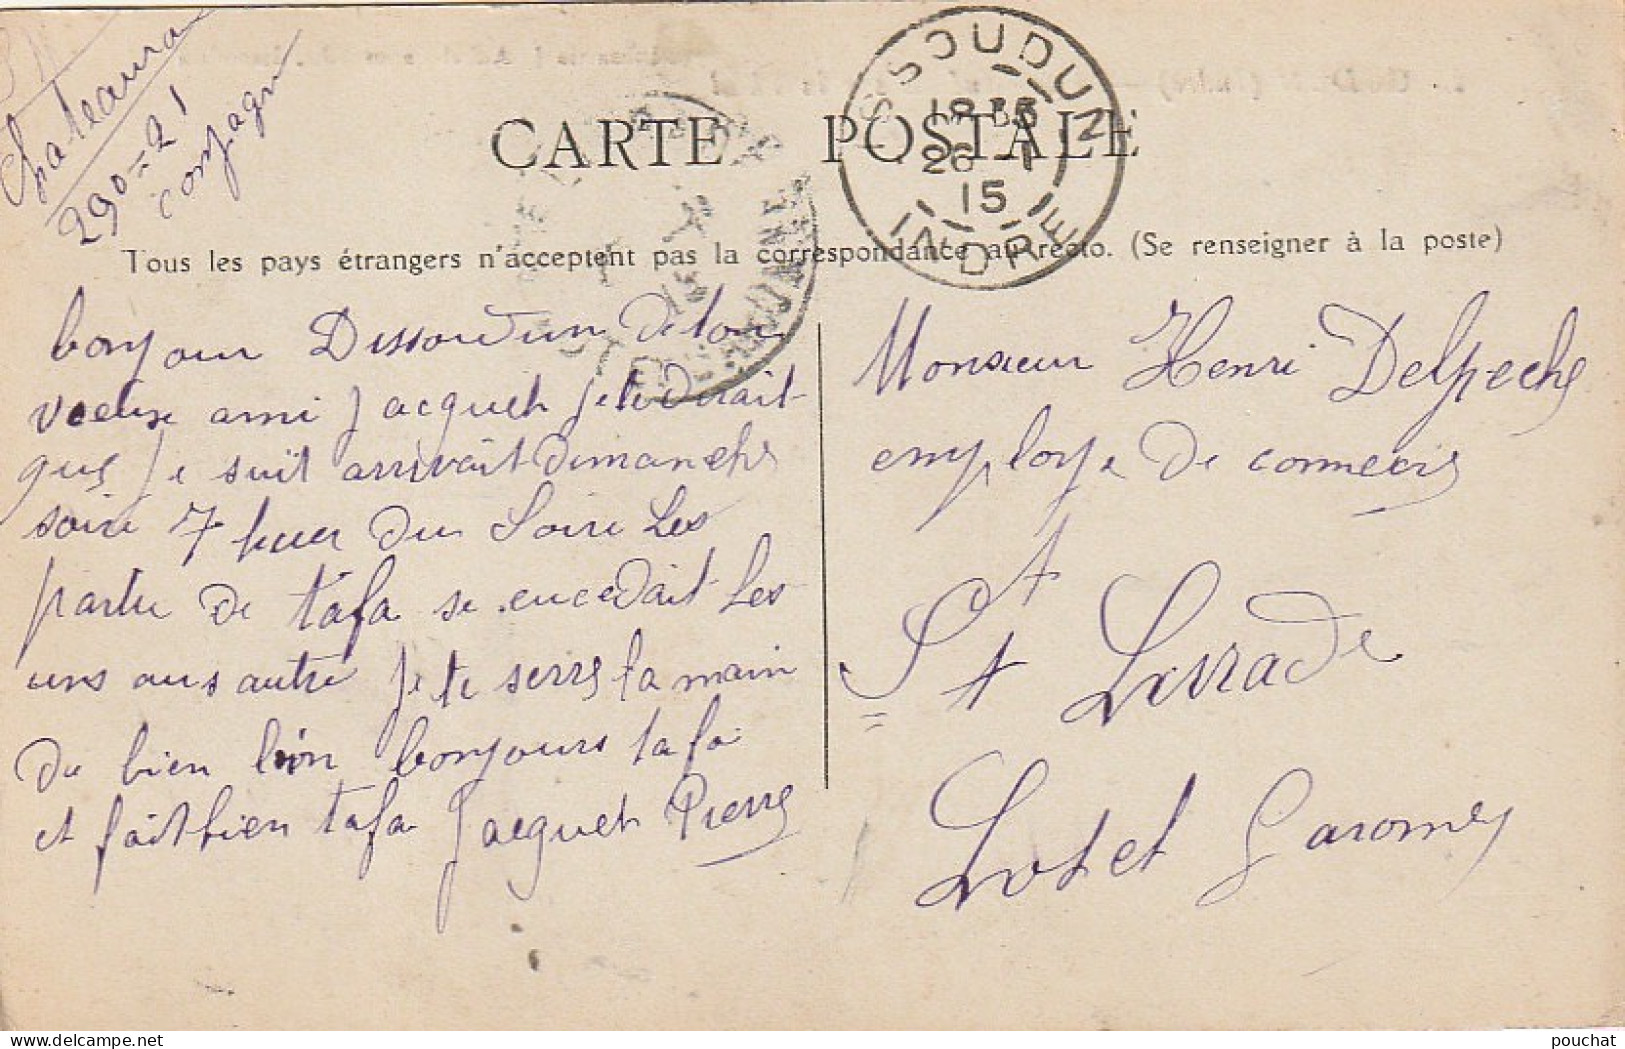 Chateaurou
290 = 21
compagni
CARTE POSTALE
ISSOUDUN
18 35
26 -1
15
INDRE
Tous les pays étrangers n'acceptent pas la correspondance au recto. (Se renseigner à la poste)
bonjour Dissoudun De tou
voeuse ami Jacqueh Je te Dirait
que Je suit arrivait Dimanche
soire 7 heur du Soire Les
partu de tafa se sucedait Les
uns aus autre Je te serre la main
Du bien loin bonjours tafa
et fait bien tafa Jacqueh Pierre
Monsieur Henri Delpeche
employe De commercis
St Livrade
Lot et Garonne
pouchat